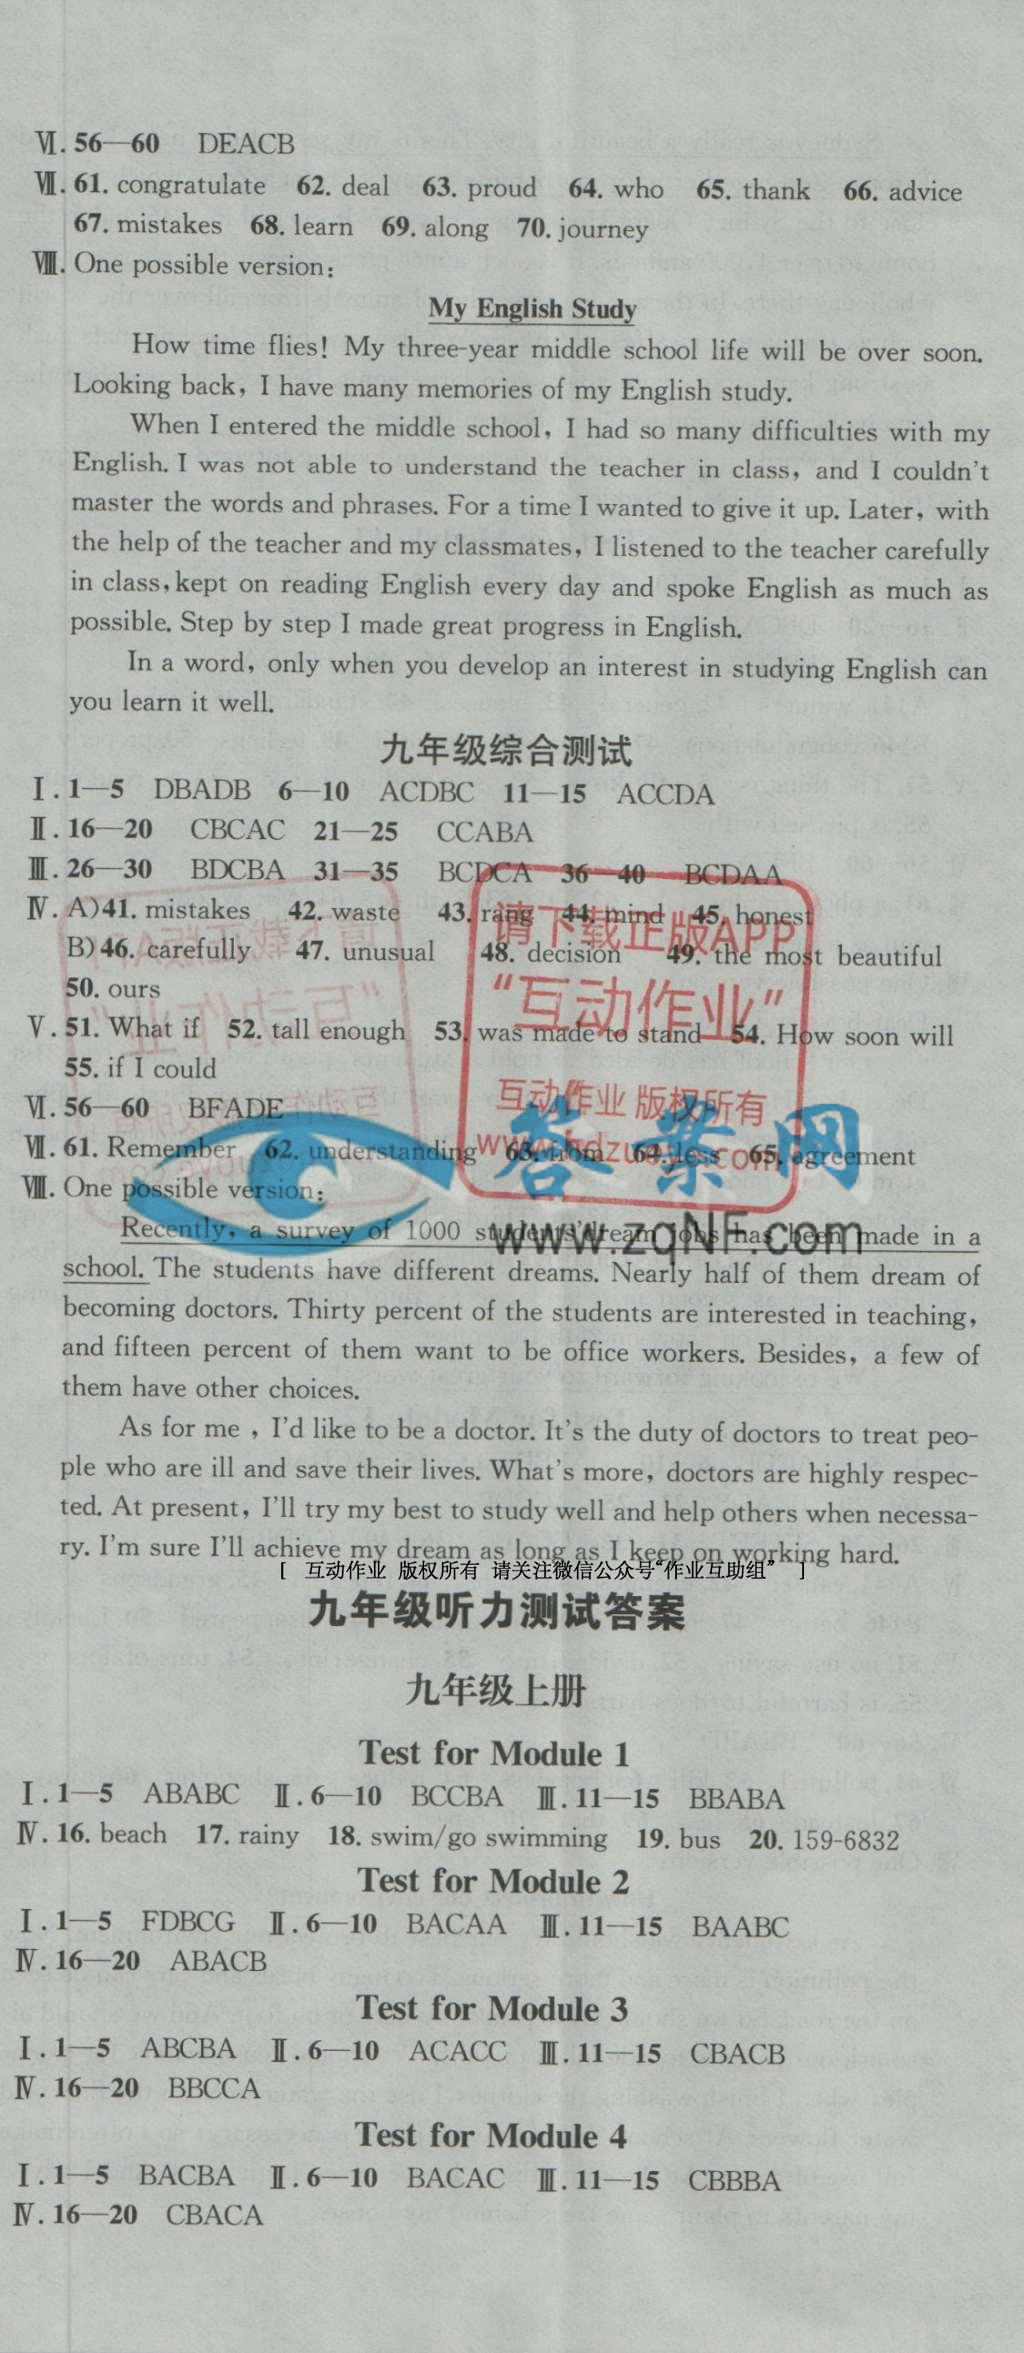 Ⅵ. 56—60 DEACB
Ⅶ. 61. congratulate 62. deal 63. proud 64. who 65. thank 66. advice
67. mistakes 68. learn 69. along 70. journey
Ⅷ. One possible version:
My English Study
How time flies! My three-year middle school life will be over soon.
Looking back, I have many memories of my English study.
When I entered the middle school, I had so many difficulties with my
English. I was not able to understand the teacher in class, and I couldn't
master the words and phrases. For a time I wanted to give it up. Later, with
the help of the teacher and my classmates, I listened to the teacher carefully
in class, kept on reading English every day and spoke English as much as
possible. Step by step I made great progress in English.
In a word, only when you develop an interest in studying English can
you learn it well.
九年级综合测试
Ⅰ. 1—5 DBADB 6—10 ACDBC 11—15 ACCDA
Ⅱ. 16—20 CBCAC 21—25 CCABA
Ⅲ. 26—30 BDCBA 31—35 BCDCA 36—40 BCDAA
Ⅳ. A)41. mistakes 42. waste 43. rang 44. mind 45. honest
B)46. carefully 47. unusual 48. decision 49. the most beautiful
50. ours
Ⅴ. 51. What if 52. tall enough 53. was made to stand 54. How soon will
55. if I could
Ⅵ. 56—60 BFADE
Ⅶ. 61. Remember 62. understanding 63. from 64. less 65. agreement
Ⅷ. One possible version:
Recently, a survey of 1000 students'dream jobs has been made in a
school. The students have different dreams. Nearly half of them dream of
becoming doctors. Thirty percent of the students are interested in teaching,
and fifteen percent of them want to be office workers. Besides, a few of
them have other choices.
As for me , I'd like to be a doctor. It's the duty of doctors to treat peo-
ple who are ill and save their lives. What's more, doctors are highly respec-
ted. At present, I'll try my best to study well and help others when necessa-
ry. I'm sure I'll achieve my dream as long as I keep on working hard.
[ 互动作业 版权所有 请关注微信公众号“作业互助组” ]
九年级听力测试答案
九年级上册
Test for Module 1
Ⅰ. 1—5 ABABC Ⅱ. 6—10 BCCBA Ⅲ. 11—15 BBABA
Ⅳ. 16. beach 17. rainy 18. swim/go swimming 19. bus 20. 159-6832
Test for Module 2
Ⅰ. 1—5 FDBCG Ⅱ. 6—10 BACAA Ⅲ. 11—15 BAABC
Ⅳ. 16—20 ABACB
Test for Module 3
Ⅰ. 1—5 ABCBA Ⅱ. 6—10 ACACC Ⅲ. 11—15 CBACB
Ⅳ. 16—20 BBCCA
Test for Module 4
Ⅰ. 1—5 BACBA Ⅱ. 6—10 BACAC Ⅲ. 11—15 CBBBA
Ⅳ. 16—20 CBACA
请下载正版APP
“互动作业”
互动作业 版权所有
答案网
www.zqNF.com